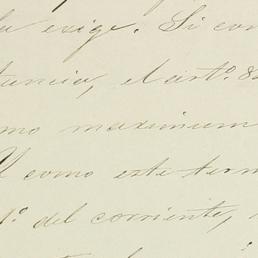 la exige. Si con
tancia, el artº. 8
mo maximum
Y como este term
1º. del corriente,